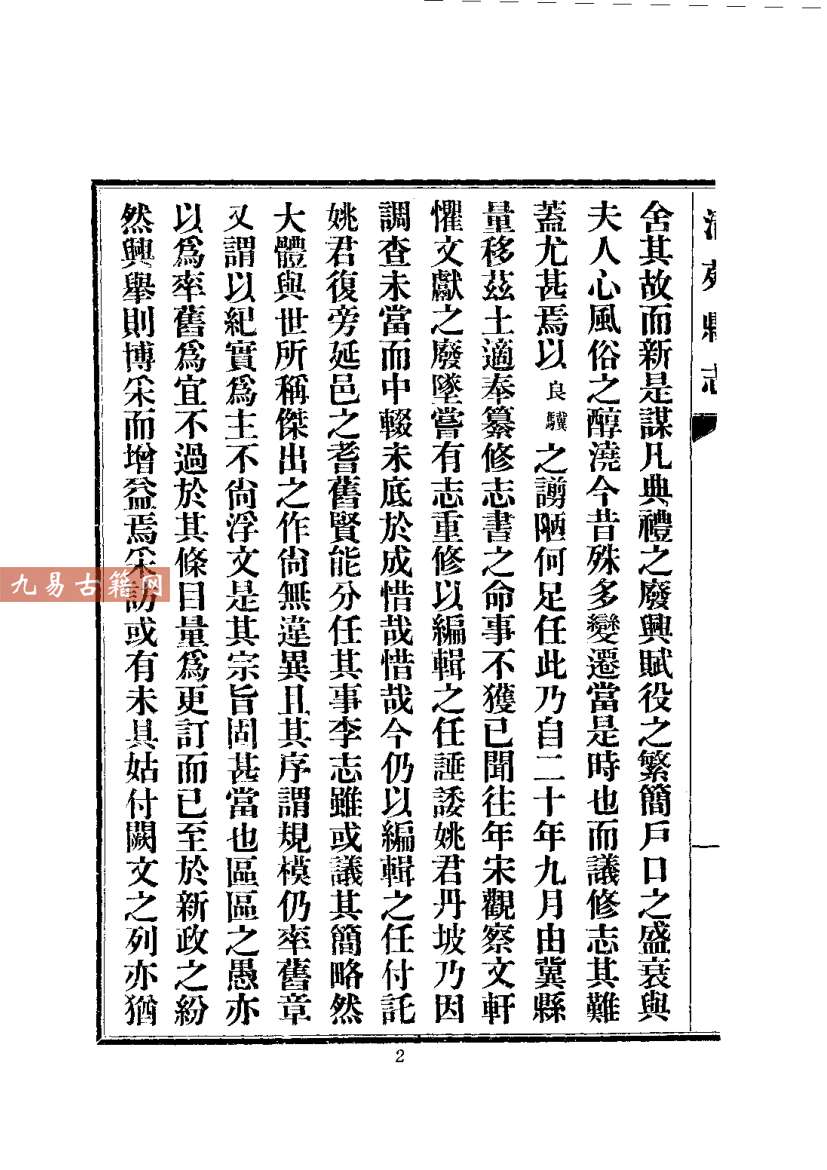 清苑縣志
舍其故而新是謀凡典禮之廢興賦役之繁簡戶口之盛衰與
夫人心風俗之醇澆今昔殊多變遷當是時也而議修志其難
蓋尤甚焉以良驥之謭陋何足任此乃自二十年九月由冀縣
量移茲土適奉纂修志書之命事不獲已聞往年宋觀察文軒
懼文獻之廢墜嘗有志重修以編輯之任諈諉姚君丹坡乃因
調查未當而中輟未底於成惜哉惜哉今仍以編輯之任付託
姚君復旁延邑之耆舊賢能分任其事李志雖或議其簡略然
大體與世所稱傑出之作尙無違異且其序謂規模仍率舊章
又謂以紀實爲主不尙浮文是其宗旨固甚當也區區之愚亦
以爲率舊爲宜不過於其條目量爲更訂而已至於新政之紛
然興舉則博采而增益焉采訪或有未具姑付闕文之列亦猶
九易古籍网
2